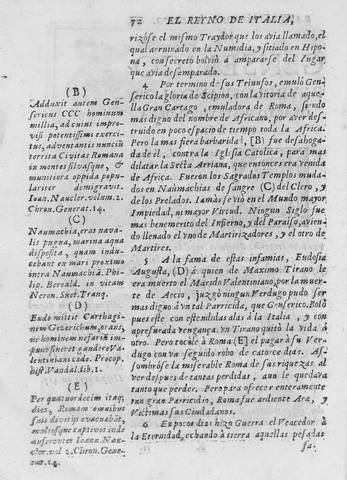 72 EL REYNO DE ITALIA,
rizóse el mismo Traydor que los avia llamado, el
qual arruinado en la Numidia, y sitiado en Hipo-
na, con secreto bolvió a ampararse del lugar
que avia desamparado.
4 Por termino de sus Triunfos, emuló Gen-
serico la gloria de Scipion, con la vitoria de aque-
lla Gran Cartago, emuladora de Roma, siendo
mas digno del nombre de Africano, por aver des-
truido en poco espacio de tiempo toda la Africa.
Pero la mas fiera barbaridad, [B] fue desahoga-
da de él, contra la Iglesia Catolica, para mas
dilatar la Secta Arriana, que entonces era venida
de Africa. Fueron los Sagrados Templos muda-
dos en Naumachias de sangre (C) del Clero, y
de los Prelados. Jamás se vió en el Mundo mayor
Impiedad, ni mayor Virtud. Ningun Siglo fue
mas benemerito del Infierno, y del Paraiso, avien-
do llenado el vno de Martirizadores, y el otro de
Martires.
5 A la fama de estas infamias, Eudosia
Augusta, (D) á quien de Maximo Tirano le
era muerto el Marido Valentiniano, por la muer-
te de Accio, juzgó ningun Verdugo pudo ser
mas digno á vn tal Parricida, que Genserico. Boló
pues este con estendidas alas á la Italia, y con
apresurada vengança, vn Tirano quitó la vida á
otro. Pero tocóle á Roma (E) el pagar á su Ver-
dugo con va seguido robo de catorce dias. As-
sombróse la miserable Roma de sus riquezas, al
ver despues de tantas perdidas, que le quedava
tanto que perder. Pero para ofrecer enteramente
tan gran Parricida, Roma fue ardiente Ara, y
Victimas sus Ciudadanos.
6 En pocos dias hizo Guerra el Vencedor à
la Eternidad, echando à tierra aquellas pesadas
(B)
Adduxit autem Gen-
sericus CCC hominum
millia, ad cuius impro-
visi potentissimi exerci-
tus, adventantis nuncium
territa Civitas Romana
in montes silvasque, &
munitiora oppida popu-
lariter demigravit.
Ioan. Naucler. volum. 2.
Chron. Generat. 14.
(C)
Naumachia, erat nava-
lis pugna, marina aqua
disposita, quam indu-
cebant ex mari proximo
intra Naumachiā. Phi-
lip. Beroald. in vitam
Neron. Suet. Tranq.
(D)
Eudoxia mittit Carthagi-
nem Genzerichum, orans,
ne hominem nefariū im-
pune sineret gaudere Va-
lentiniani cæde. Procop.
hist. Vandal. lib. 1.
(E)
Per quatuordecim itaq;
dies, Romam omnibus
suis divitijs evacuabat,
multosque captivos inde
auferentes Ioann. Nau-
cler. vol 2. Chron. Gene-